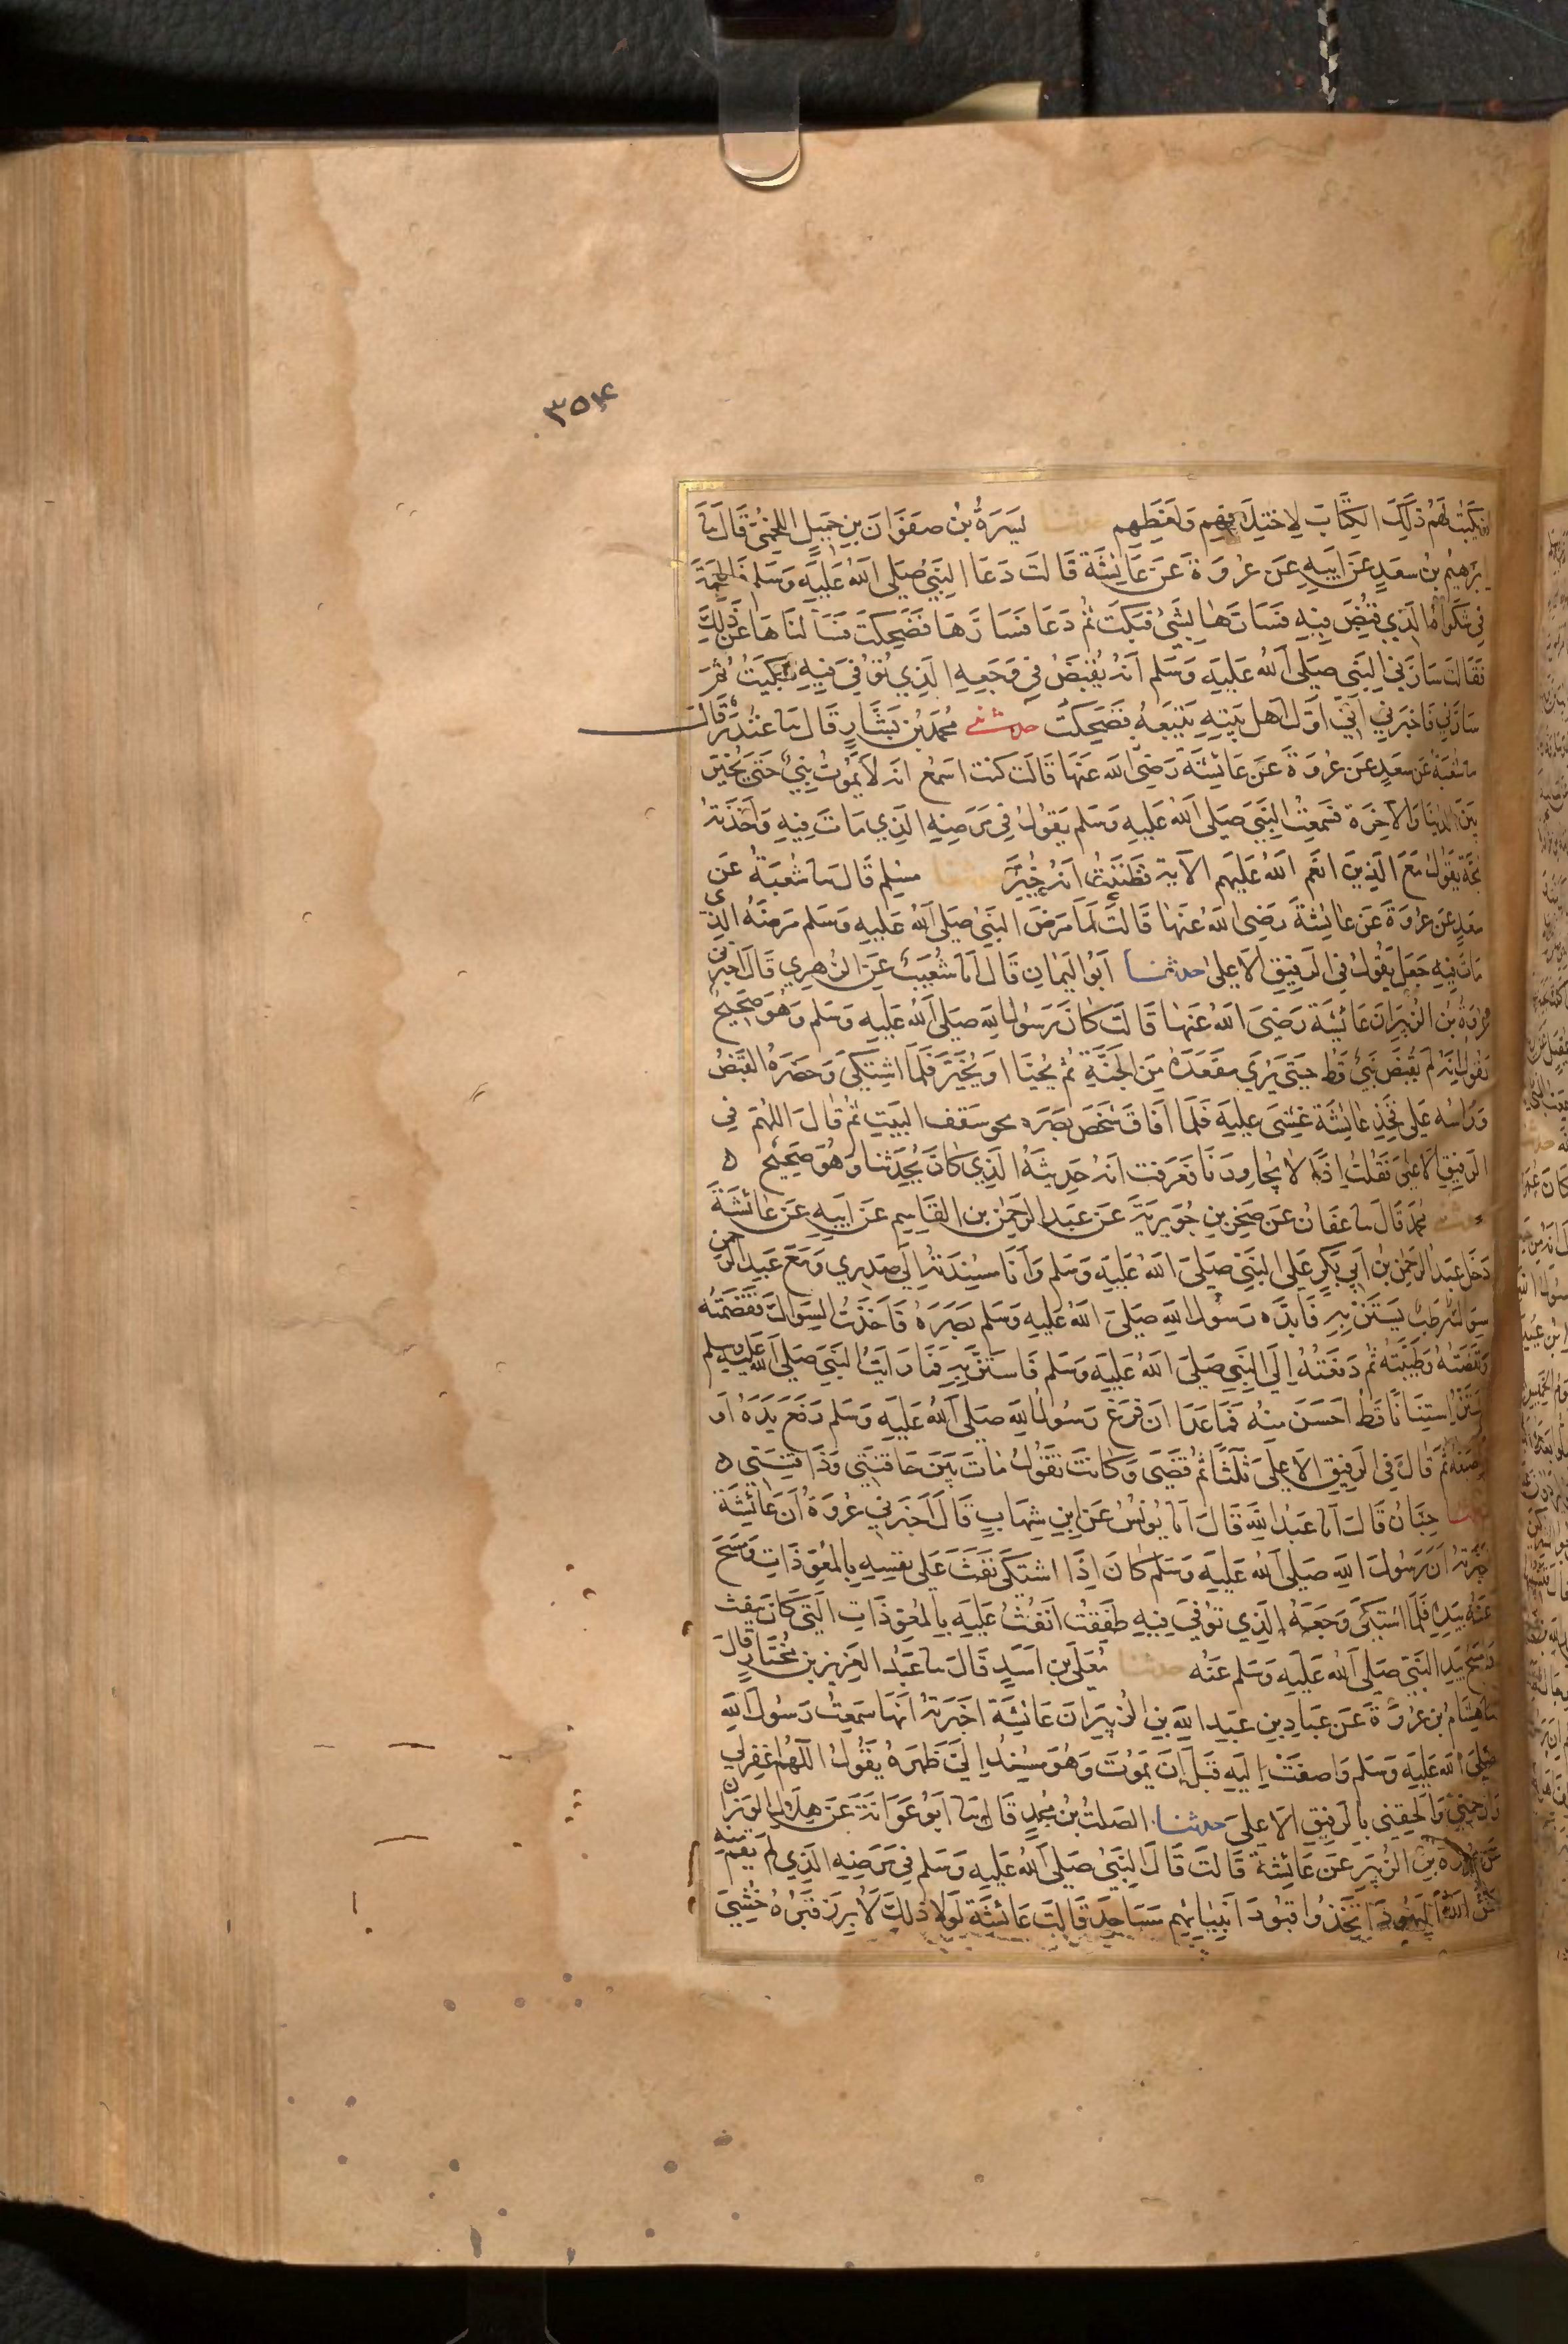 ٣٥٤
ان يكتب لهم ذلك الكتاب لاختلافهم ولغطهم حدثنا يسرة بن صفوان بن جميل اللخمي قال نا
ابرهيم بن سعد عن ابيه عن عروة عن عايشة قالت دعا النبي صلى الله عليه وسلم فاطمة
في شكواه الذي قبض فيه فسارها بشي فبكت ثم دعا فسارها فضحكت فسالناها عن ذلك
فقالت سارني النبي صلى الله عليه وسلم انه يقبض في وجعه الذي توفي فيه فبكيت ثم
سارني فاخبرني اني اول اهل بيته يتبعه فضحكت حدثني محمد بن بشار قال نا غندر قال
نا شعبة عن سعد عن عروة عن عائشة رضي الله عنها قالت كنت اسمع انه لا يموت نبي حتى يخير
بين الدنيا والآخرة فسمعت النبي صلى الله عليه وسلم يقول في مرضه الذي مات فيه واخذته
بحة يقول مع الذين انعم الله عليهم الآية فظننت انه خير حدثنا مسلم قال نا شعبة عن
سعد عن عروة عن عائشة رضي الله عنها قالت لما مرض النبي صلى الله عليه وسلم مرضه الذي
مات فيه جعل يقول في الرفيق الاعلى حدثنا ابو اليمان قال انا شعيب عن الزهري قال اخبرني
عروة بن الزبير ان عائشة رضي الله عنها قالت كان رسول الله صلى الله عليه وسلم وهو صحيح
يقول انه لم يقبض نبي قط حتى يرى مقعده من الجنة ثم يحيا او يخير فلما اشتكى وحضره القبض
وراسه على فخذ عايشة غشي عليه فلما افاق شخص بصره نحو سقف البيت ثم قال اللهم في
الرفيق الاعلى فقلت اذا لا يجاورنا فعرفت انه حديثه الذي كان يحدثنا وهو صحيح ٥
حدثنا محمد قال نا عفان عن صخر بن جويرية عن عبد الرحمن بن القاسم عن ابيه عن عائشة
دخل عبد الرحمن بن ابي بكر على النبي صلى الله عليه وسلم وانا مسندته الى صدري ومع عبد الرحمن
سواك رطب يستن به فابده رسول الله صلى الله عليه وسلم بصره فاخذت السواك فقضمته
ونفضته وطيبته ثم دفعته الى النبي صلى الله عليه وسلم فاستن به فما رايت النبي صلى الله عليه وسلم
استن استنانا قط احسن منه فما عدا ان فرغ رسول الله صلى الله عليه وسلم رفع يده او
اصبعه ثم قال في الرفيق الاعلى ثلثا ثم قضى وكانت تقول مات بين حاقنتي وذاقنتي ٥
حدثنا حبان قال انا عبد الله قال انا يونس عن ابن شهاب قال اخبرني عروة ان عائشة
اخبرته ان رسول الله صلى الله عليه وسلم كان اذا اشتكى نفث على نفسه بالمعوذات ومسح
عنه بيده فلما اشتكى وجعه الذي توفي فيه طفقت انفث عليه بالمعوذات التي كان ينفث
وامسح بيد النبي صلى الله عليه وسلم عنه حدثنا معلى بن اسد قال نا عبد العزيز بن مختار قال
نا هشام بن عروة عن عباد بن عبد الله بن الزبير ان عائشة اخبرته انها سمعت رسول الله
صلى الله عليه وسلم واصغت اليه قبل ان يموت وهو مسند الي ظهره يقول اللهم اغفر لي
وارحمني والحقني بالرفيق الاعلى حدثنا الصلت بن محمد قال نا ابو عوانة عن هلال الوزان
عن عروة بن الزبير عن عائشة قالت قال النبي صلى الله عليه وسلم في مرضه الذي لم يقم منه
لعن الله اليهود اتخذوا قبور انبيائهم مساجد قالت عائشة لولا ذلك لأبرز قبره خشي